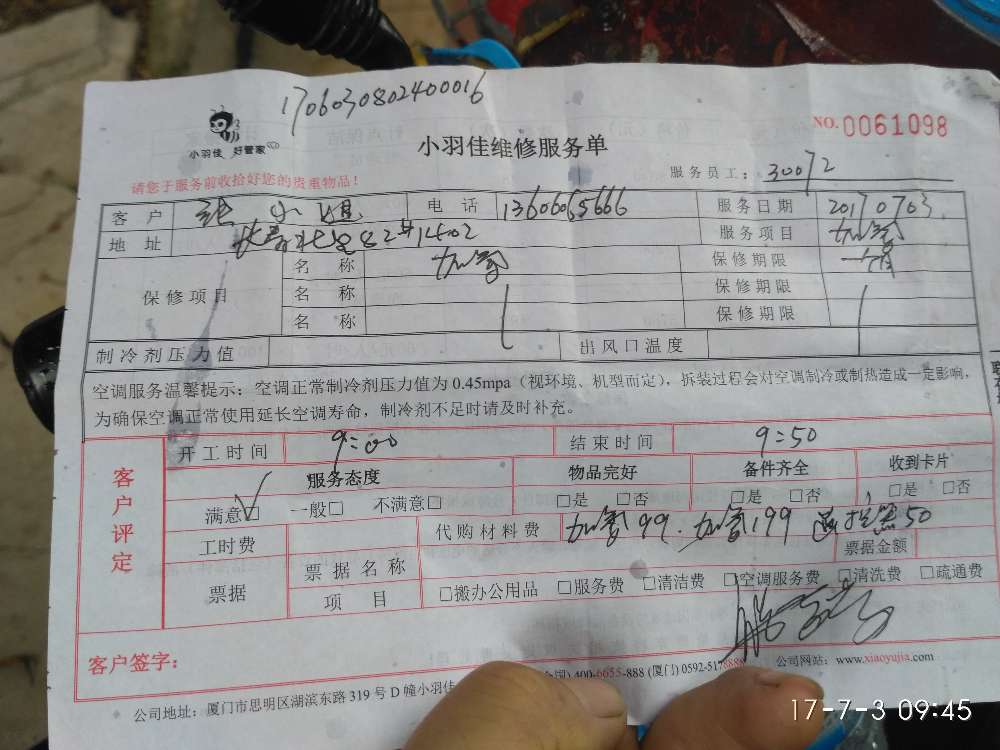 170603080240016
小羽佳 好管家
小羽佳维修服务单
NO. 0061098
请您于服务前收拾好您的贵重物品！
服务员工： 30072
客户 张小姐 电话 13606065666 服务日期 20170703
地址 82# 1402 服务项目 加氟
保修项目 名称 加氟 保修期限 一个月
名称 保修期限
名称 保修期限
制冷剂压力值 出风口温度
空调服务温馨提示：空调正常制冷剂压力值为 0.45mpa（视环境、机型而定），拆装过程会对空调制冷或制热造成一定影响，
为确保空调正常使用延长空调寿命，制冷剂不足时请及时补充。
客户评定
开工时间 9:00 结束时间 9:50
服务态度 物品完好 备件齐全 收到卡片
满意□ 一般□ 不满意□ □是 □否 □是 □否 □是 □否
工时费 代购材料费 加氟99. 加氟199 50
票据 票据名称 票据金额
项目 □搬办公用品 □服务费 □清洁费 □空调服务费 □清洗费 □疏通费
客户签字：
400-6655-888 (厦门) 0592-5178888 公司网站：www.xiaoyujia.com
公司地址：厦门市思明区湖滨东路 319 号 D 幢小羽佳
17-7-3 09:45